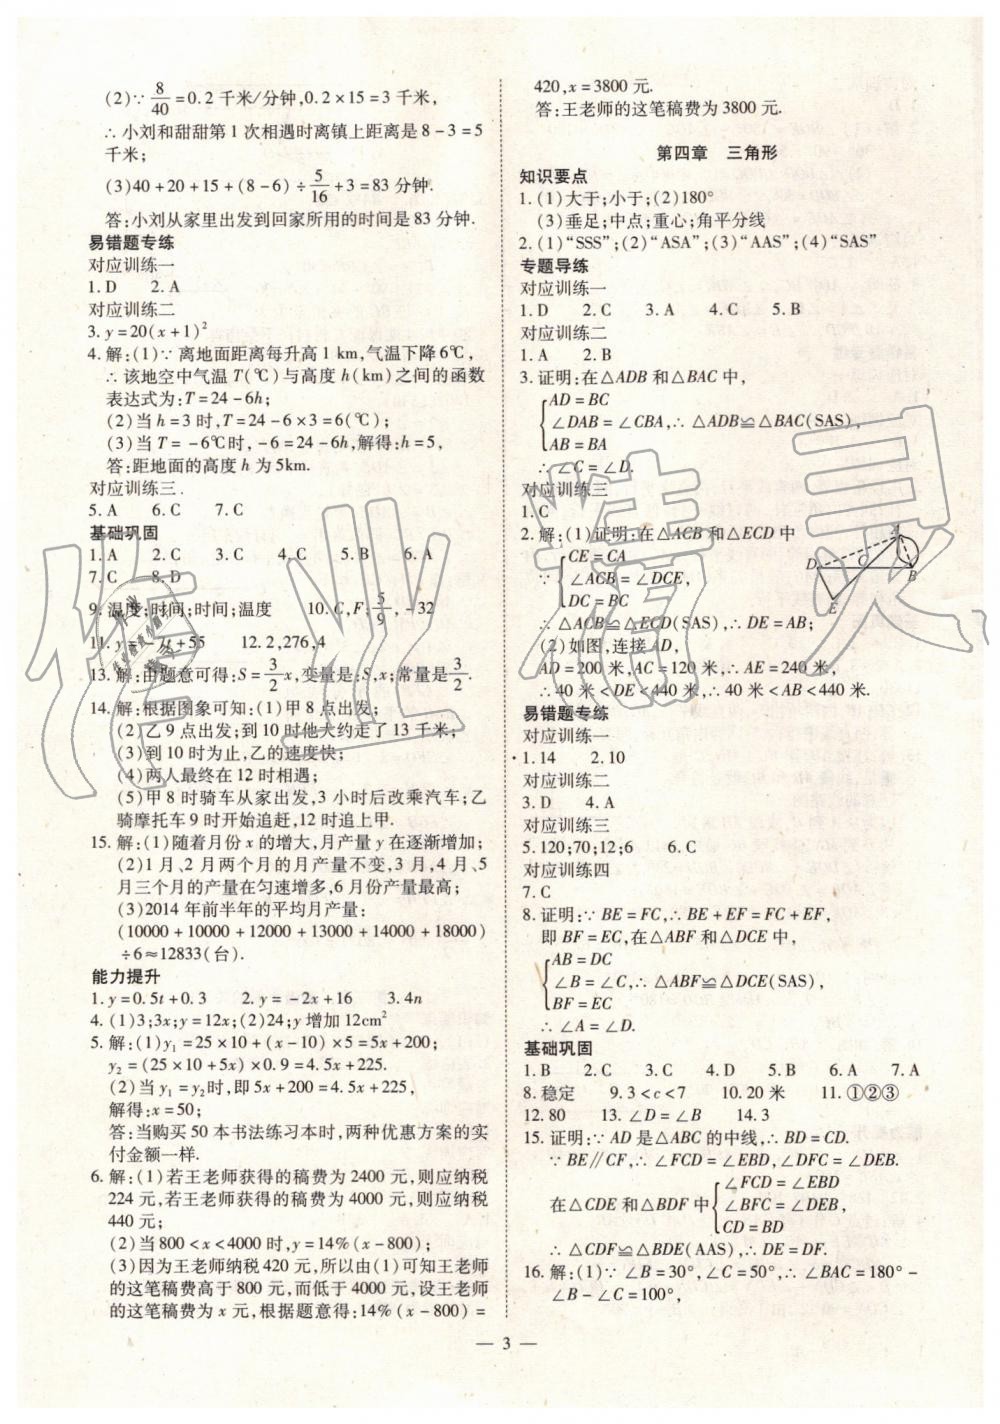 (2)∵8/40=0.2千米/分钟,0.2×15=3千米,
∴小刘和甜甜第1次相遇时离镇上距离是8-3=5
千米;
(3)40+20+15+(8-6)÷5/16+3=83分钟.
答:小刘从家里出发到回家所用的时间是83分钟.
易错题专练
对应训练一
1.D 2.A
对应训练二
3.y=20(x+1)²
4.解:(1)∵离地面距离每升高1 km,气温下降6℃,
∴该地空中气温T(℃)与高度h(km)之间的函数
表达式为:T=24-6h;
(2)当h=3时,T=24-6×3=6(℃);
(3)当T=-6℃时,-6=24-6h,解得:h=5,
答:距地面的高度h为5km.
对应训练三
5.A 6.C 7.C
基础巩固
1.A 2.C 3.C 4.C 5.B 6.A
7.C 8.D
9.温度;时间;时间;温度 10.C,F;5/9,-32
11.y= +55 12.2,276,4
13.解:由题意可得:S=3/2x,变量是:S,x;常量是3/2.
14.解:根据图象可知:(1)甲8点出发;
(2)乙9点出发;到10时他大约走了13千米;
(3)到10时为止,乙的速度快;
(4)两人最终在12时相遇;
(5)甲8时骑车从家出发,3小时后改乘汽车;乙
骑摩托车9时开始追赶,12时追上甲.
15.解:(1)随着月份x的增大,月产量y在逐渐增加;
(2)1月、2月两个月的月产量不变,3月,4月、5
月三个月的产量在匀速增多,6月份产量最高;
(3)2014年前半年的平均月产量:
(10000+10000+12000+13000+14000+18000)
÷6≈12833(台).
能力提升
1.y=0.5t+0.3 2.y=-2x+16 3.4n
4.(1)3;3x;y=12x;(2)24;y增加12cm²
5.解:(1)y₁=25×10+(x-10)×5=5x+200;
y₂=(25×10+5x)×0.9=4.5x+225.
(2)当y₁=y₂时,即5x+200=4.5x+225,
解得:x=50;
答:当购买50本书法练习本时,两种优惠方案的实
付金额一样.
6.解:(1)若王老师获得的稿费为2400元,则应纳税
224元,若王老师获得的稿费为4000元,则应纳税
440元;
(2)当800<x<4000时,y=14%(x-800);
(3)因为王老师纳税420元,所以由(1)可知王老师
的这笔稿费高于800元,而低于4000元,设王老师
的这笔稿费为x元,根据题意得:14%(x-800)=
420,x=3800元.
答:王老师的这笔稿费为3800元.
第四章 三角形
知识要点
1.(1)大于;小于;(2)180°
(3)垂足;中点;重心;角平分线
2.(1)“SSS”;(2)“ASA”;(3)“AAS”;(4)“SAS”
专题导练
对应训练一
1.D 2.C 3.A 4.C 5.B
对应训练二
1.A 2.B
3.证明:在△ADB和△BAC中,
AD=BC
∠DAB=∠CBA,∴△ADB≌△BAC(SAS),
AB=BA
∴∠C=∠D.
对应训练三
1.C
2.解:(1)证明:在△ACB和△ECD中
CE=CA
∵∠ACB=∠DCE,
DC=BC
∴△ACB≌△ECD(SAS),∴DE=AB;
(2)如图,连接AD,
AD=200米,AC=120米,∴AE=240米,
∴40米<DE<440米,∴40米<AB<440米.
A
D
C
B
E
易错题专练
对应训练一
1.14 2.10
对应训练二
3.D 4.A
对应训练三
5.120;70;12;6 6.C
对应训练四
7.C
8.证明:∵BE=FC,∴BE+EF=FC+EF,
即BF=EC,在△ABF和△DCE中,
AB=DC
∠B=∠C,∴△ABF≌△DCE(SAS),
BF=EC
∴∠A=∠D.
基础巩固
1.B 2.C 3.C 4.D 5.B 6.A 7.A
8.稳定 9.3<c<7 10.20米 11.①②③
12.80 13.∠D=∠B 14.3
15.证明:∵AD是△ABC的中线,∴BD=CD.
∵BE∥CF,∴∠FCD=∠EBD,∠DFC=∠DEB.
∠FCD=∠EBD
在△CDE和△BDF中∠BFC=∠DEB,
CD=BD
∴△CDF≌△BDE(AAS),∴DE=DF.
16.解:(1)∵∠B=30°,∠C=50°,∴∠BAC=180°-
∠B-∠C=100°,
— 3 —
作业精灵